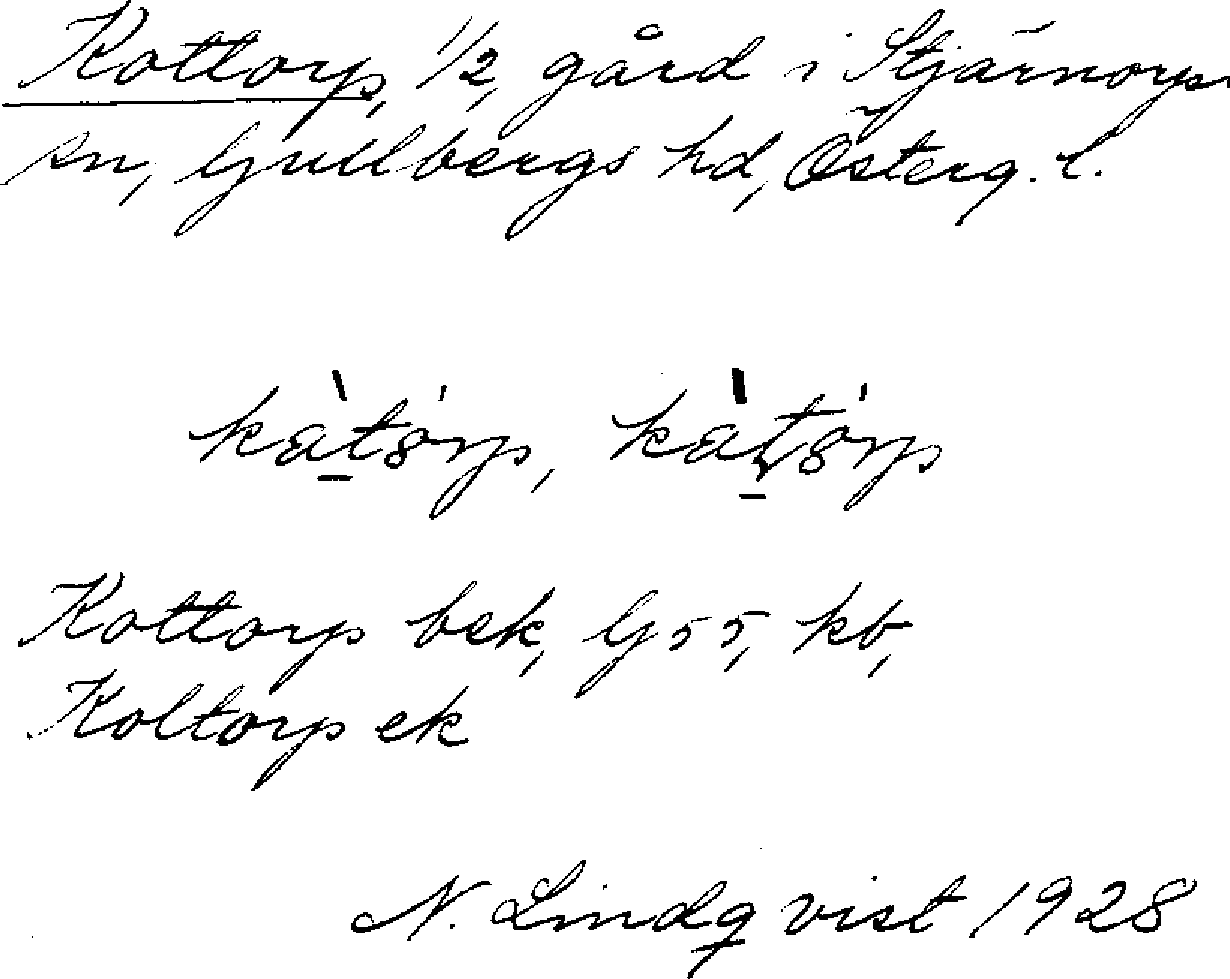 Kottorp, 1/2, gård i Stjärnorps
sn, Gullbergs hd, Österg. l.
kàtórp, kàtórp
Kottorp bek, G 55, kb,
Koltorp ek
N. Lindqvist 1928